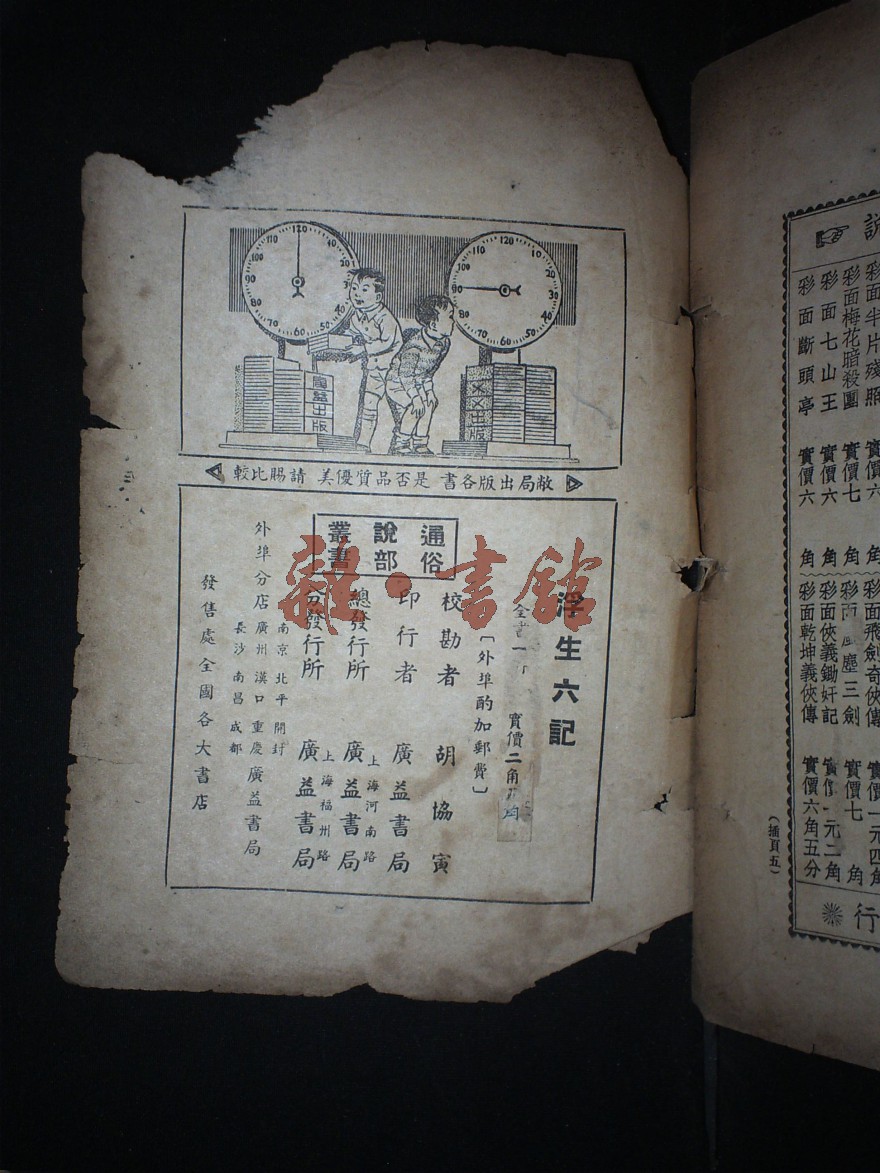 120
10
20
30
40
50
60
70
80
90
100
110
廣益出版
120
10
20
30
40
50
60
70
80
90
100
110
××出版
敝局出版各書 是否品質優美 請賜比較
通俗
說部
叢書
浮生六記
全書一
實價二角
〔外埠酌加郵費〕
校勘者 胡協寅
印行者 廣益書局
總發行所 上海河南路 廣益書局
分發行所 上海福州路 廣益書局
外埠分店
南京 北平 開封
廣州 漢口 重慶
長沙 南昌 成都
廣益書局
發售處全國各大書店
雜·書館
說
彩面半片殘照 實價六角
彩面梅花暗殺團 實價七角
彩面七山王 實價六角
彩面斷頭亭 實價六角
彩面飛劍奇俠傳 實價一元四角
彩面風塵三劍 實價七角
彩面俠義鋤奸記 實價一元二角
彩面乾坤義俠傳 實價六角五分
行
（插頁五）